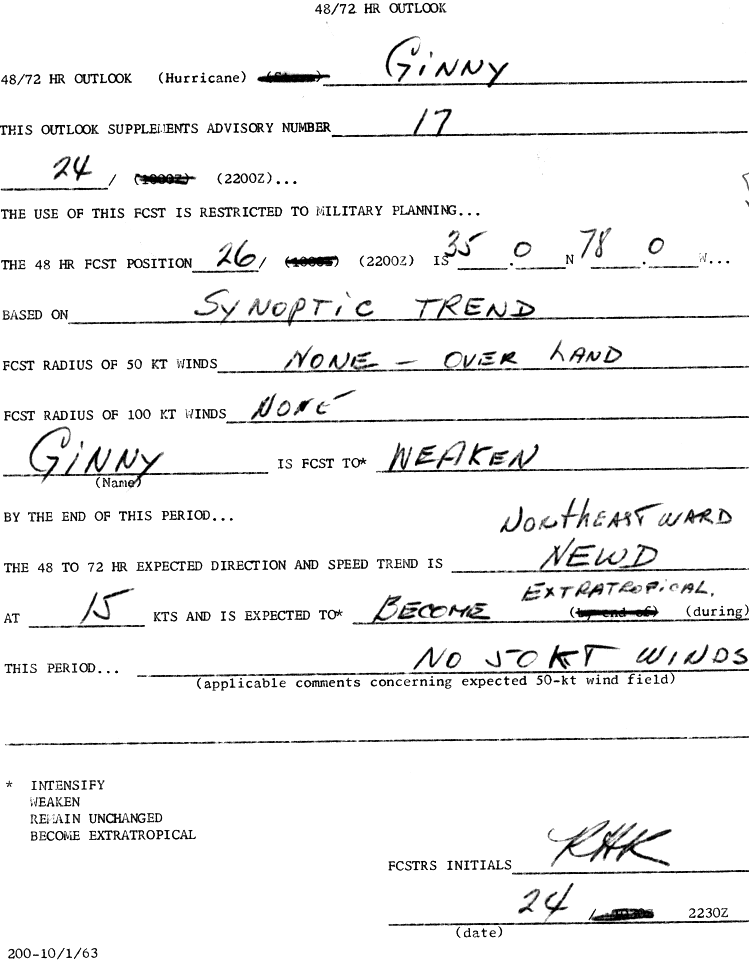 48/72 HR OUTLOOK
48/72 HR OUTLOOK (Hurricane) GiNNY
THIS OUTLOOK SUPPLEMENTS ADVISORY NUMBER 17
24 / (1000Z) (2200Z)...
THE USE OF THIS FCST IS RESTRICTED TO MILITARY PLANNING...
THE 48 HR FCST POSITION 26 / (2200Z) IS 35 . 0 N 78 . 0 W...
BASED ON SYNOPTiC TREND
FCST RADIUS OF 50 KT WINDS NONE - OVER LAND
FCST RADIUS OF 100 KT WINDS NONE
GiNNY IS FCST TO* WEAKEN
(Name)
BY THE END OF THIS PERIOD... NORthEASTWARD
THE 48 TO 72 HR EXPECTED DIRECTION AND SPEED TREND IS NEWD
AT 15 KTS AND IS EXPECTED TO* BECOME EXTRATROPiCAL. (by end of) (during)
THIS PERIOD... NO 50 KT WINDS
(applicable comments concerning expected 50-kt wind field)
* INTENSIFY
WEAKEN
REMAIN UNCHANGED
BECOME EXTRATROPICAL
FCSTRS INITIALS RHK
24 / 2230Z
(date)
200-10/1/63